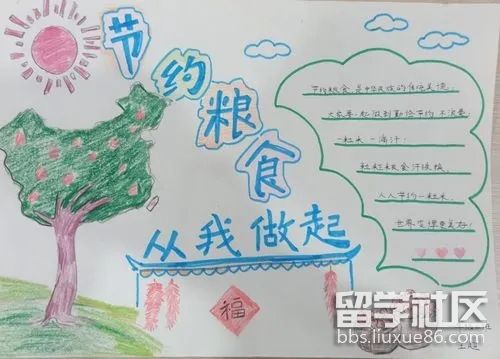 节约粮食
从我做起
节约粮食,是中华民族的传统美德,
大家要一起做到勤俭节约不浪费
一粒米一滴汗,
粒粒粮食汗珠换,
人人节约一粒米,
世界变得更美好!
福
留学社区
bbs.liuxue86.com